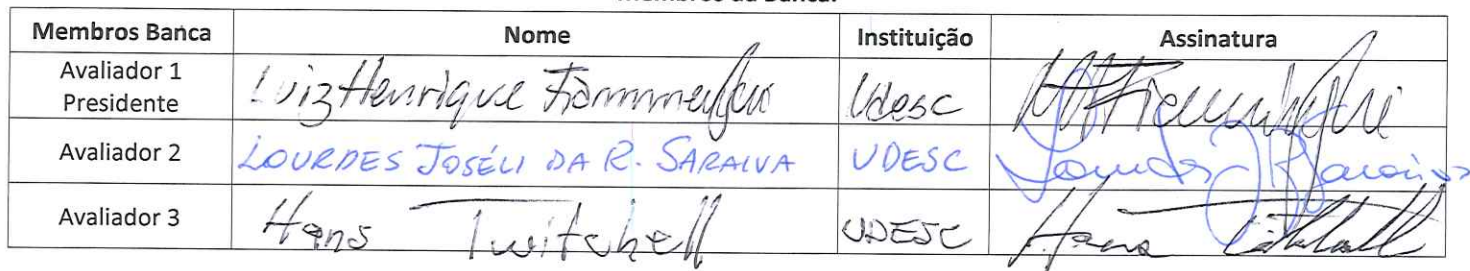 Membros da Banca:
Membros Banca Nome Instituição Assinatura
Avaliador 1
Presidente Luiz Henrique Udesc
Avaliador 2 LOURDES JOSÉLI DA R. SARAIVA UDESC
Avaliador 3 Hans Twitchell UDESC Hans